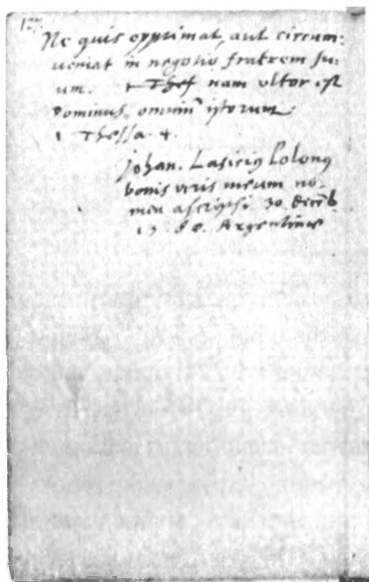 Ne quis opprimat, aut circum:
ueniat in negotio fratrem su-
um. nam vltor est
Dominus omniũ istorum
1 Thessa. 4.
Johan. Lasiciusˀ Polonusˀ
bonis viris meum no-
men ascripsi 30 decēb
Argentinae